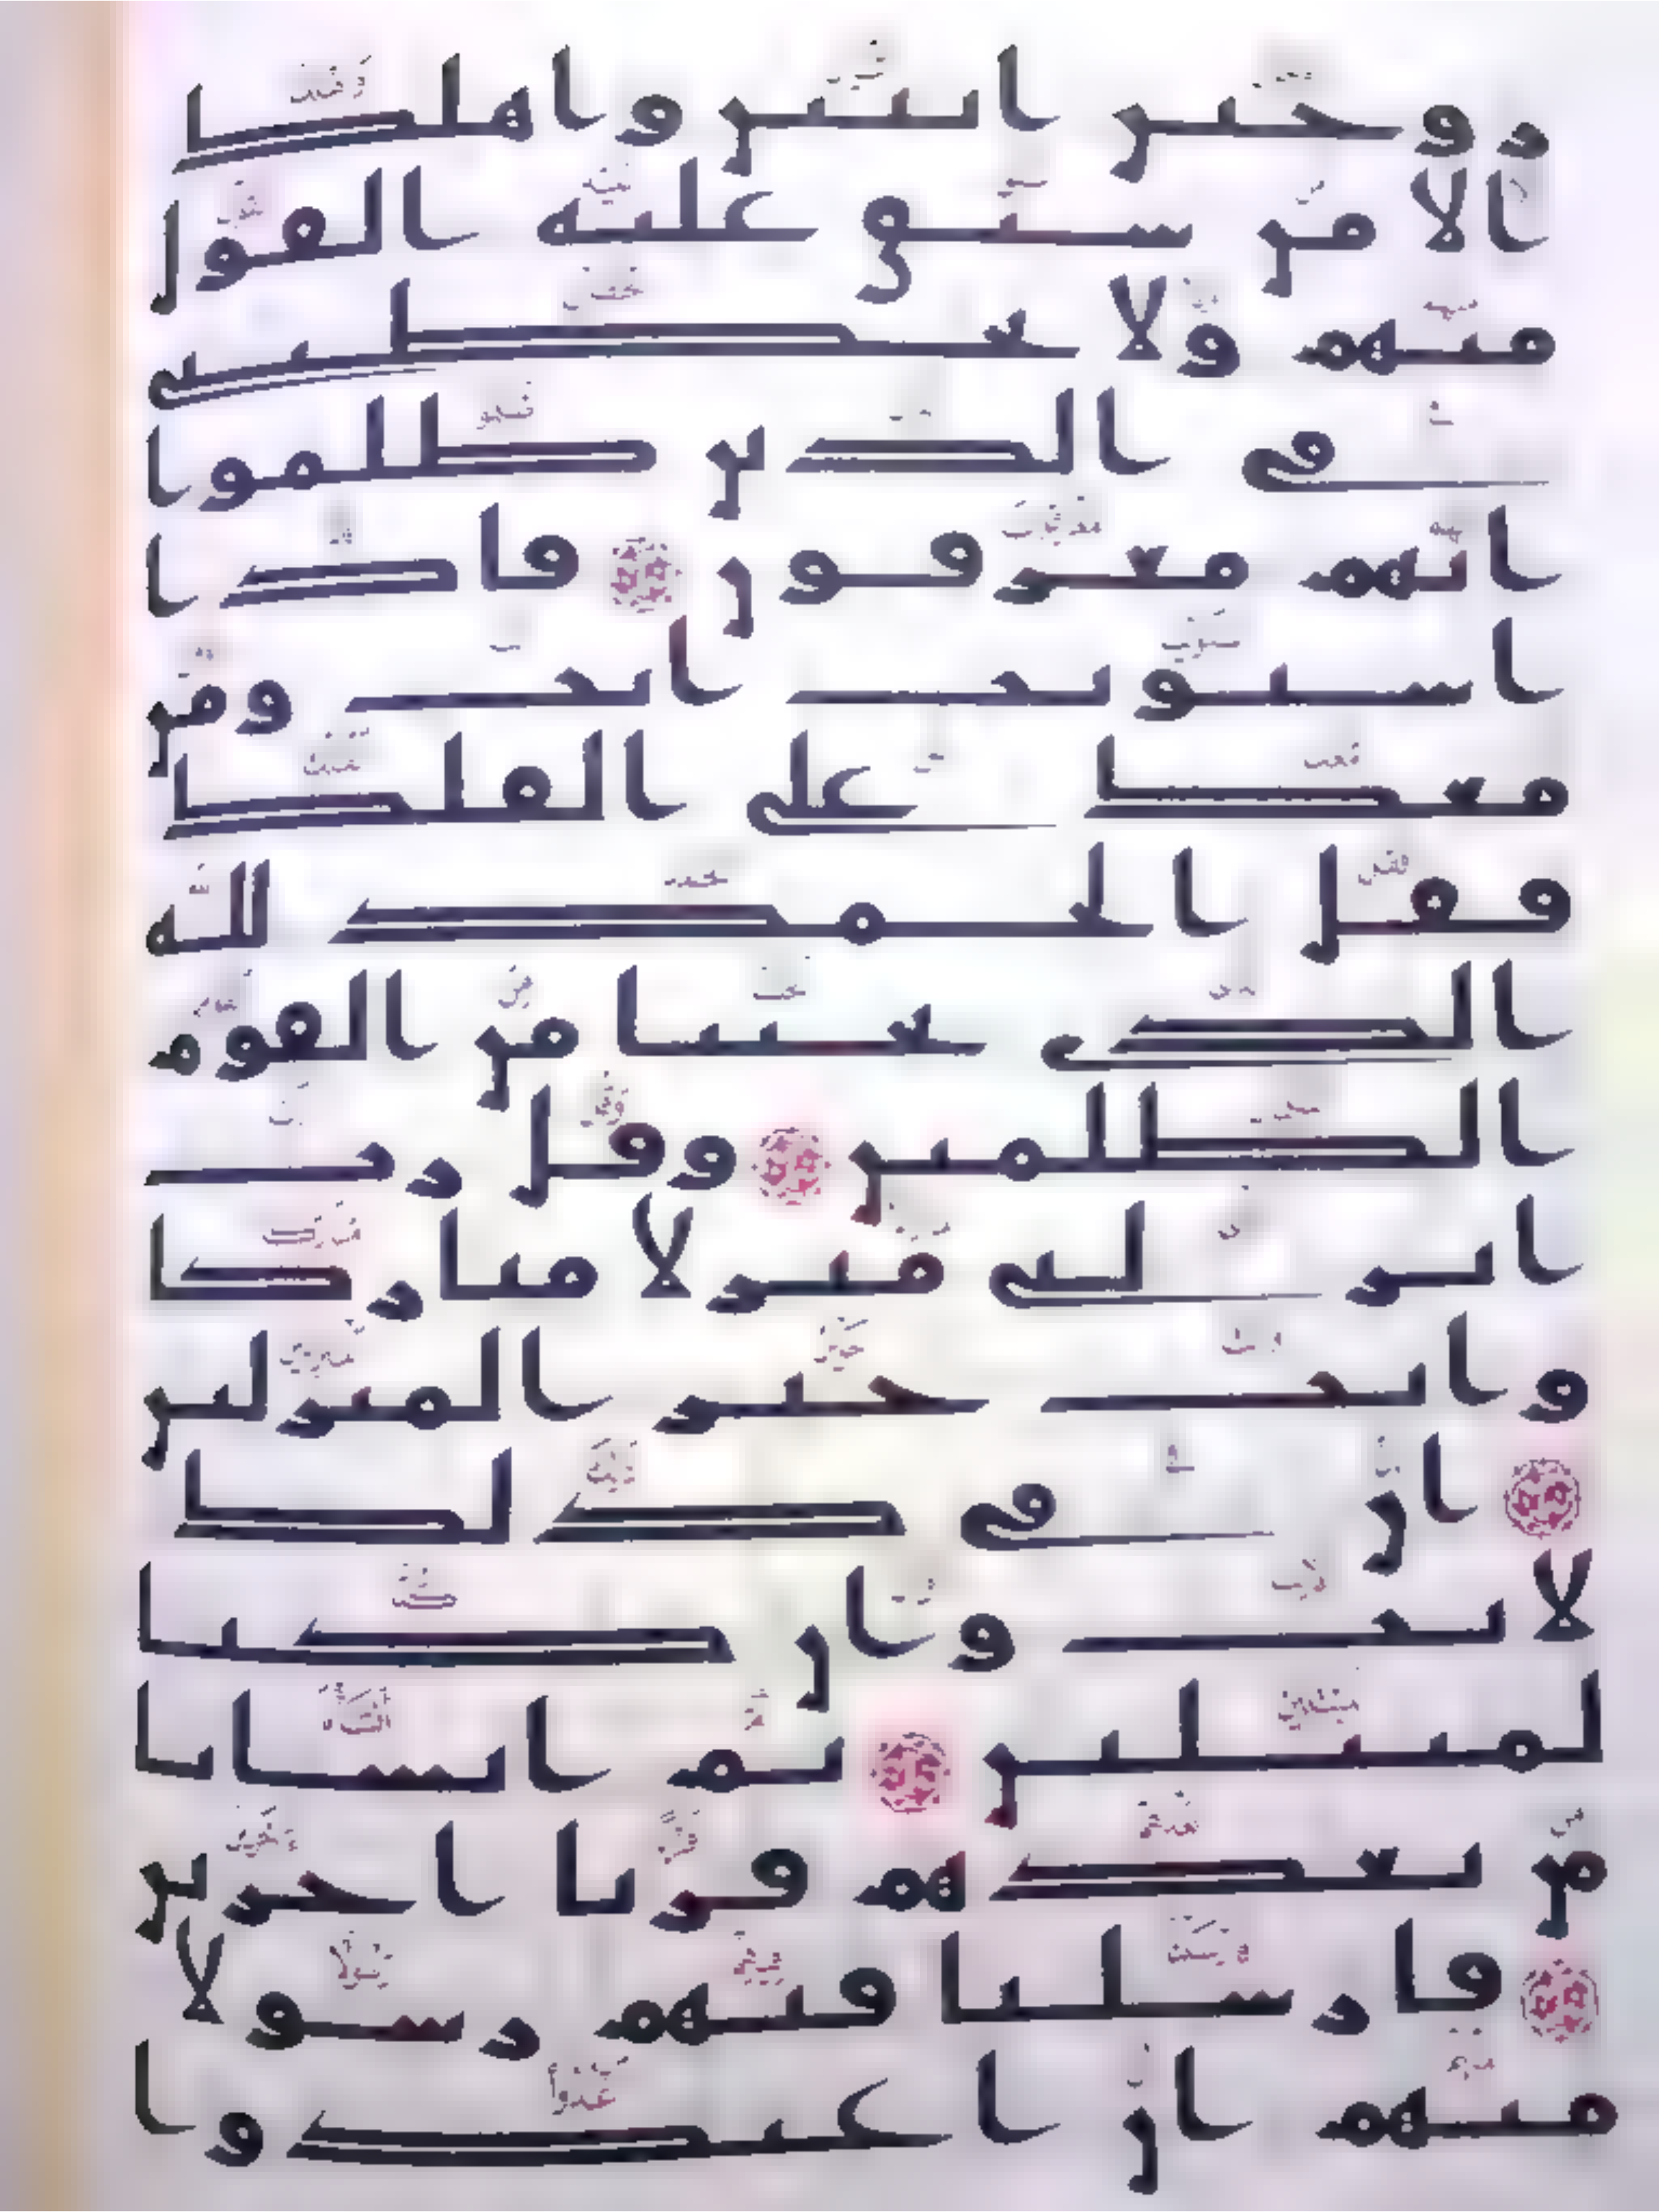 زوجين اثنين واهلك
الا من سبق عليه القول
منهم ولا تخطبني
في الذين ظلموا
انهم مغرقون فاذا
استويت انت ومن
معك على الفلك
فقل الحمد لله
الذي نجينا من القوم
الظلمين وقل رب
انزلني منزلا مباركا
وانت خير المنزلين
ان في ذلك
لايت وان كنا
لمبتلين ثم انشانا
من بعدهم قرنا اخرين
فارسلنا فيهم رسولا
منهم ان اعبدوا